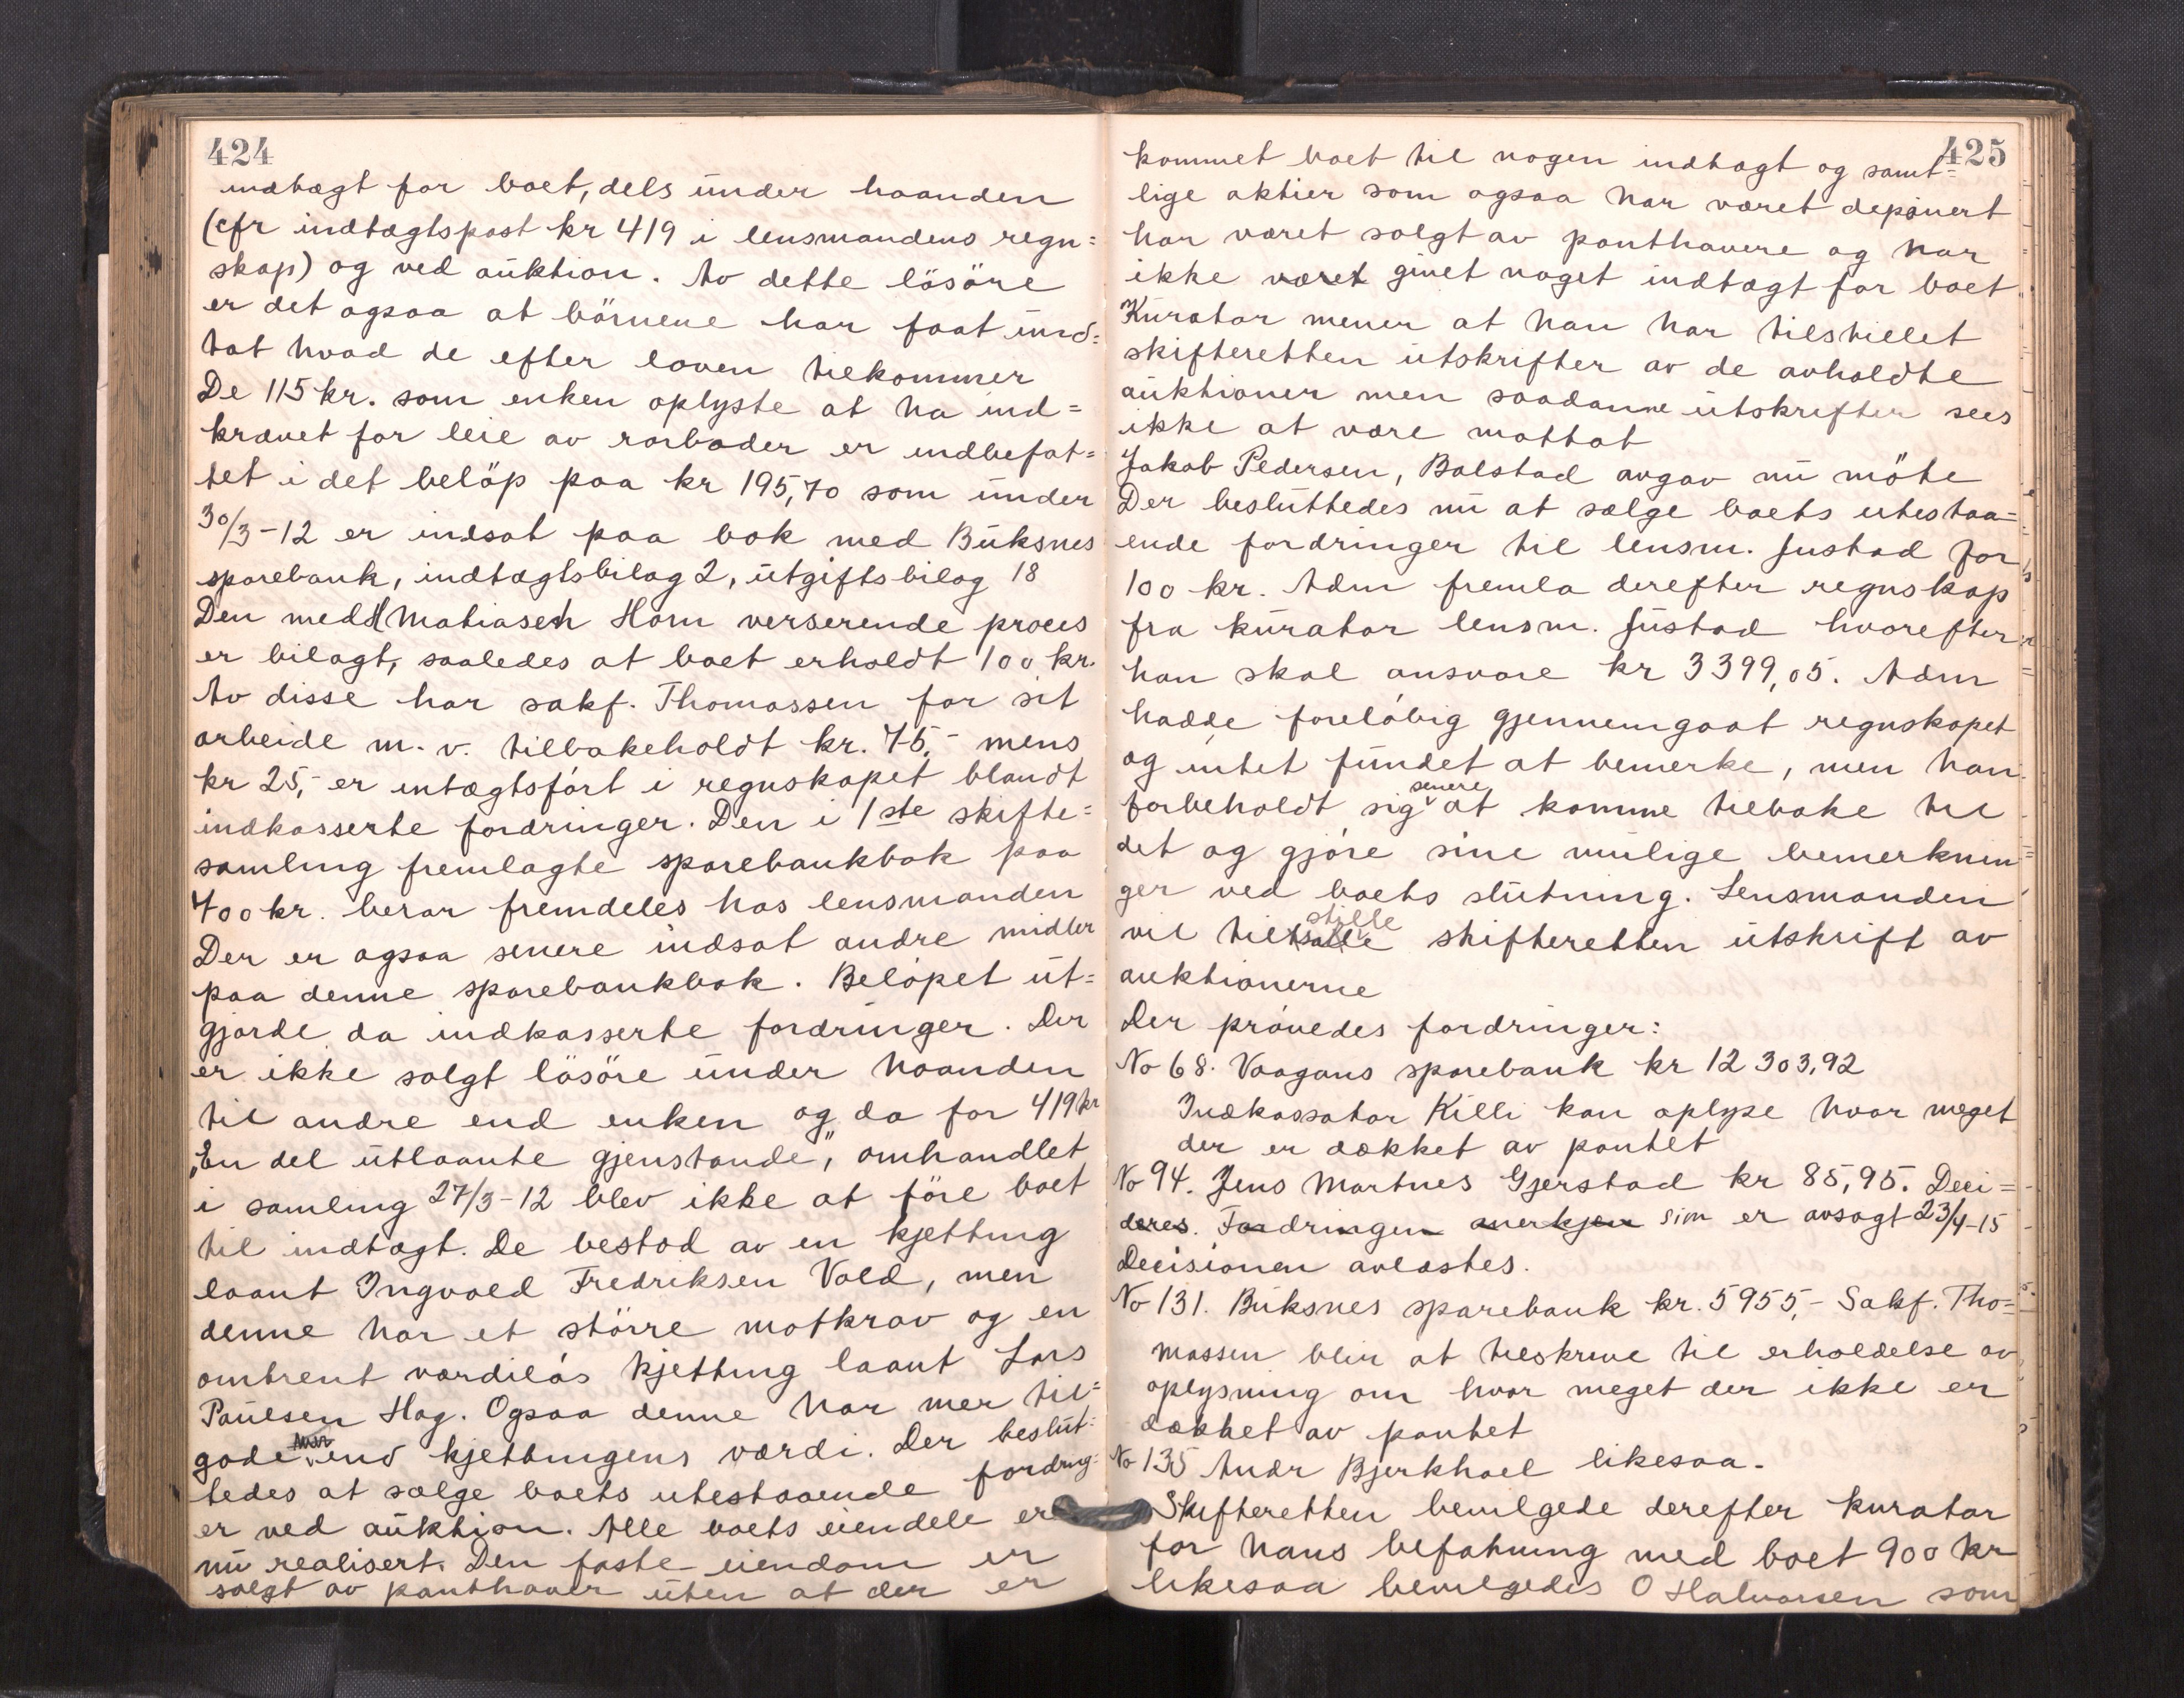 424
indtægt for boet, dels under haanden
(cfr indtægtspost kr 419 i lensmandens regn=
skap) og ved auktion. Av dette lösöre
er det ogsaa at börnene har faat und=
tat hvad de efter loven tilkommer
De 115 kr. som enken oplyste at ha ind=
krævet for leie av rorboder er indbefat=
tet i det belöp paa kr 195,70 som under
30/3-12 er indsat paa bok med Buksnes
sparebank, indtægtsbilag 2, utgiftsbilag 18
Den med Matiasen Horn verserende proces
er bilagt, saaledes at boet erholdt 100 kr.
Av disse har sakf. Thomassen for sit
arbeide m.v. tilbakeholdt kr. 75,- mens
kr 25,- er intægtsfört i regnskapet blandt
indkasserte fordringer. Den i 1ste skifte=
samling fremlagte sparebankbok paa
400 kr. beror fremdeles hos lensmanden
Der er ogsaa senere indsat andre midler
paa denne sparebankbok. Belöpet ut=
gjorde da indkasserte fordringer. Der
er ikke solgt lösöre under haanden
til andre end enken og da for 419 kr
„En del utlaante gjenstande", omhandlet
i samling 27/3-12 blev ikke at före boet
til indtægt. De bestod av en kjetting
laant Ingvald Fredriksen Vold, men
denne har et större motkrav og en
omtrent værdilös kjetting laant Lars
Paulsen Hag. Ogsaa denne har mer til=
gode end kjettingens værdi. Der beslut=
tedes at sælge boets utestaaende fordring=
er ved auktion. Alle boets eiendele er
nu realisert. Den faste eiendom er
solgt av panthaver uten at der er
425
kommet boet til nogen indtægt og samt=
lige aktier som ogsaa har været deponert
har været solgt av panthavere og har
ikke været givet noget indtægt for boet
Kurator mener at han har tilstillet
skifteretten utskrifter av de avholdte
auktioner men saadanne utskrifter sees
ikke at være mottat
Jakob Pedersen, Balstad avgav nu möte
Der besluttedes nu at sælge boets utestaa=
ende fordringer til lensm. Justad for
100 kr. Adm fremla derefter regnskap
fra kurator lensm. Justad hvorefter
han skal ansvare kr 3399,05. Adm
hadde foreløbig gjennemgaat regnskapet
og intet fundet at bemerke, men han
forbeholdt sig senere at komme tilbake til
det og gjøre sine mulige bemerknin=
ger ved boets slutning. Lensmanden
vil tilstille skifteretten utskrift av
auktionerne
Der prøvedes fordringer:
No 68. Vaagans sparebank kr 12 303,92
Indkassator Killi kan oplyse hvor meget
der er dækket av pantet
No 94. Jens Martnes Gjerstad kr 85,95. Deci=
deres. Fordringen anerkjen sion er avsagt 23/4-15
Decisionen avlæstes.
No 131. Buksnes sparebank kr. 5955,- Sakf. Tho=
massen blir at tilskrive til erholdelse av
oplysning om hvor meget der ikke er
dækket av pantet
No 135 Andr Bjerkhoel likesaa.
Skifteretten bevilgede derefter kurator
for hans befatning med boet 900 kr
likesaa bevilgedes O Halvorsen som